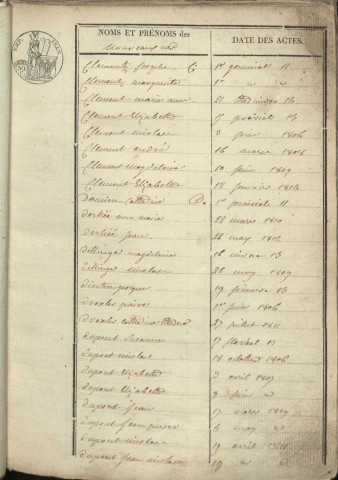 RÉP. FRA.
NOMS ET PRÉNOMS des
DATE DES ACTES.
nouveaux nés
Clement Josephe C. 1er germinal 11
Clement marguerite 1er " "
Clement marie anne 11 thermidor 13
Clement Elizabeth 17 prairial 13
Clement nicolas 2 juin 1806
Clement andré 16 mars 1808
Clement magdelaine 10 juin 1809
Clement Elizabeth 18 janvier 1813
Damien Catherine D. 1er prairial 11
anne marie 28 mars 1810
jean 28 may 1812
magdelaine 16 nivose 13
nicolas 26 may 1809
19 frimaire 13
pierre 1er juin 1806
catherine 27 juillet 1811
dupont Susanne 17 floreal 13
dupont nicolas 18 octobre 1806
dupont Elizabeth 3 avril 1807
dupont Elizabeth 9 juin "
dupont Jean 17 mars 1809
dupont Jean pierre 6 may "
dupont nicolas 19 avril 1811
dupont Jean nicolas 19 " "